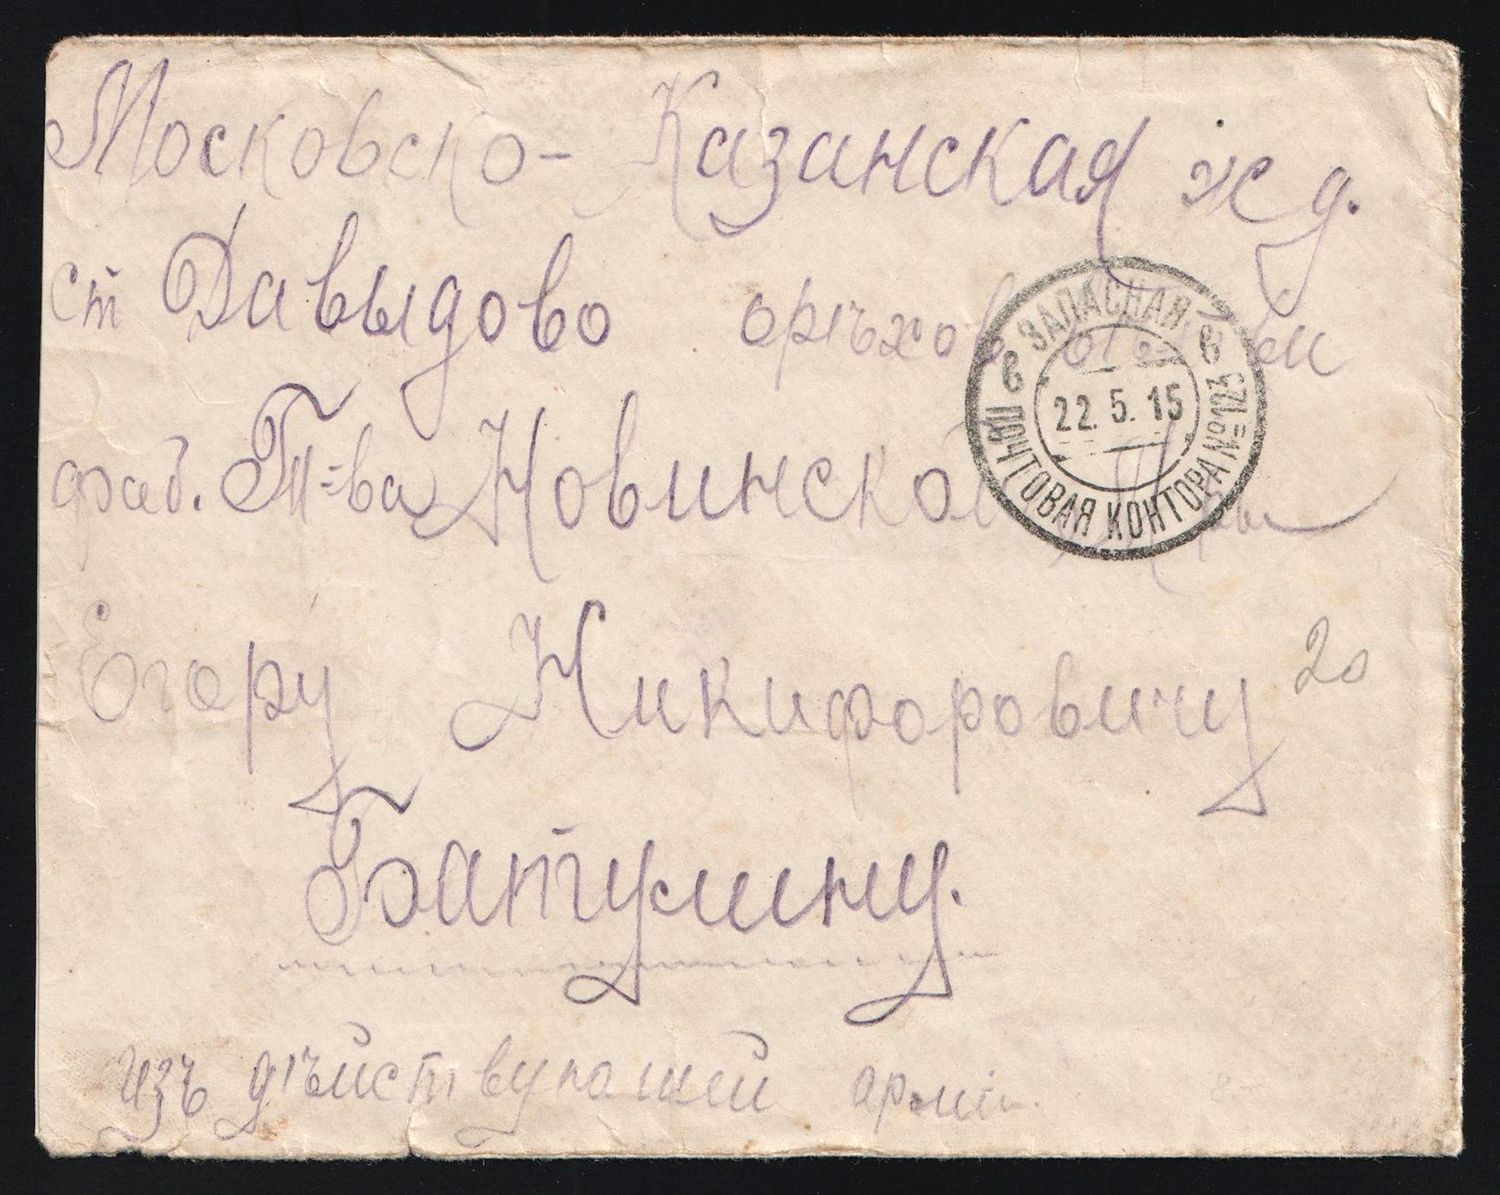 Московско-Казанская ж д.
ст Давыдово орѣхов
фаб. Т-ва Новинской М
Егору Никифоровичу 20
Батулину.
изъ дѣйствующей армiи.
ЗАПАСНАЯ
в 22.5.15 в
ПОЧТОВАЯ КОНТОРА №123